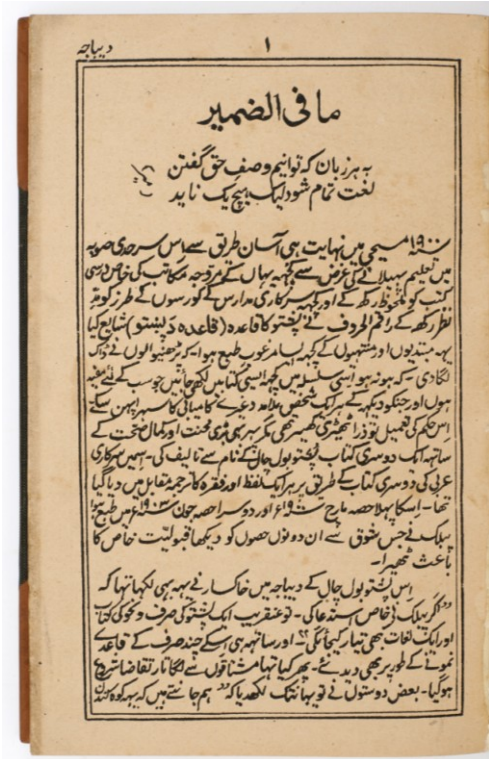 دیباچہ
۱
ما فی الضمیر
بہ ہر زبان کہ توانیم وصفِ حق گفتن
لغت تمام شود لیک ہیچ یک ناید
سنہ ۱۹۰۰ مسیحی میں نہایت ہی آسان طریق سے اِس سرحدی صوبہ
میں تعلیم پھیلانے کی غرض سے کچھہ یہاں کے مروجہ مکاتب کی خاص درسی
کتب کو ملحوظ رکھہ کے اور کچھہ سرکاری مدارس کے کورسوں کے طرز کو مدِّ
نظر رکھہ کے راقم الحروف نے پختو کا قاعدہ (قاعدہ د پښتو) شایع کیا
یہہ مبتدیوں اور منتہیوں کے کچھہ ایسا مرغوب طبع ہوا۔ کہ پڑھنیوالوں نے ڈاک
لگا دی۔ کہ ہو نہ ہو اِسی سلسلہ میں کچھہ ایسی کتابیں لکھی جائیں جو سب کے لئے مفید
ہوں اور جنکو دیکھہ کے ہر ایک شخص علاوہ دعوے کامیابی کا سہرا پہن سکے
اِس حکم کی تعمیل تو ذرا ٹھیڑی کھیر تھی مگر پھر بھی بڑی محنت اور کمال صحت کے
ساتھہ ایک دوسری کتاب پښتو بول چال کے نام سے تالیف کی۔ اِسمیں سرکاری
عربی کی دوسری کتاب کے طریق پر ہر ایک لفظ اور فقرہ کا ترجمہ مقابل میں دیا گیا
تھا۔ اِسکا پہلا حصہ مارچ اور دوسرا حصہ جون سنہ ۱۹۰۳ء میں طبع ہوا
پبلک نے جس شوق سے ان دونوں حصوں کو دیکھا قبولیّت خاص کا
باعث ٹھیرا۔
اِس پښتو بول چال کے دیباچہ میں خاکسار نے یہہ بھی لکھا تھا کہ
"اگر پبلک نے خاص استدعا کی۔ تو عنقریب ایک پښتو کی صرف و نحو کی کتاب
اور ایک لغات بھی تیار کیجائگی"۔ اور ساتھہ ہی اسکے چند صرف کے قاعدے
نمونے کے طور پر بھی دیدئے۔ پھر کیا تھا مشتاقوں سے لگاتار تقاضا شروع
ہو گیا۔ بعض دوستوں نے تو یہانتک لکھدیا کہ "ہم جانتے ہیں کہ یہہ کوہ کندن